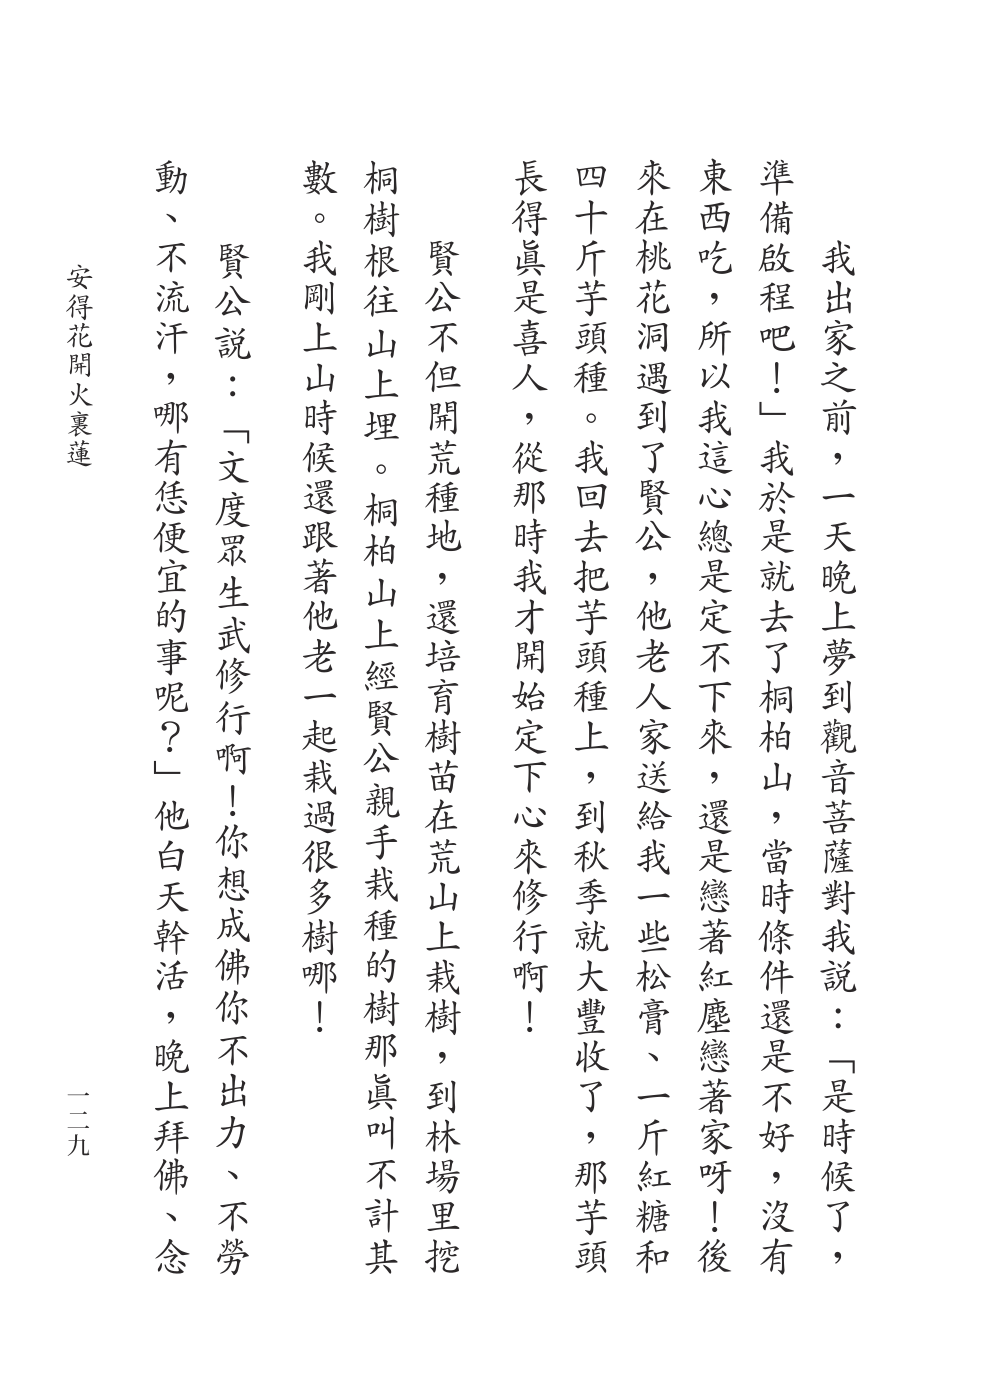 我出家之前，一天晚上夢到觀音菩薩對我説：「是時候了，
準備啟程吧！」我於是就去了桐柏山，當時條件還是不好，沒有
東西吃，所以我這心總是定不下來，還是戀著紅塵戀著家呀！後
來在桃花洞遇到了賢公，他老人家送給我一些松膏、一斤紅糖和
四十斤芋頭種。我回去把芋頭種上，到秋季就大豐收了，那芋頭
長得眞是喜人，從那時我才開始定下心來修行啊！
賢公不但開荒種地，還培育樹苗在荒山上栽樹，到林場里挖
桐樹根往山上埋。桐柏山上經賢公親手栽種的樹那眞叫不計其
數。我剛上山時候還跟著他老一起栽過很多樹哪！
賢公説：「文度眾生武修行啊！你想成佛你不出力、不勞
動、不流汗，哪有恁便宜的事呢？」他白天幹活，晚上拜佛、念
安得花開火裏蓮
一二九